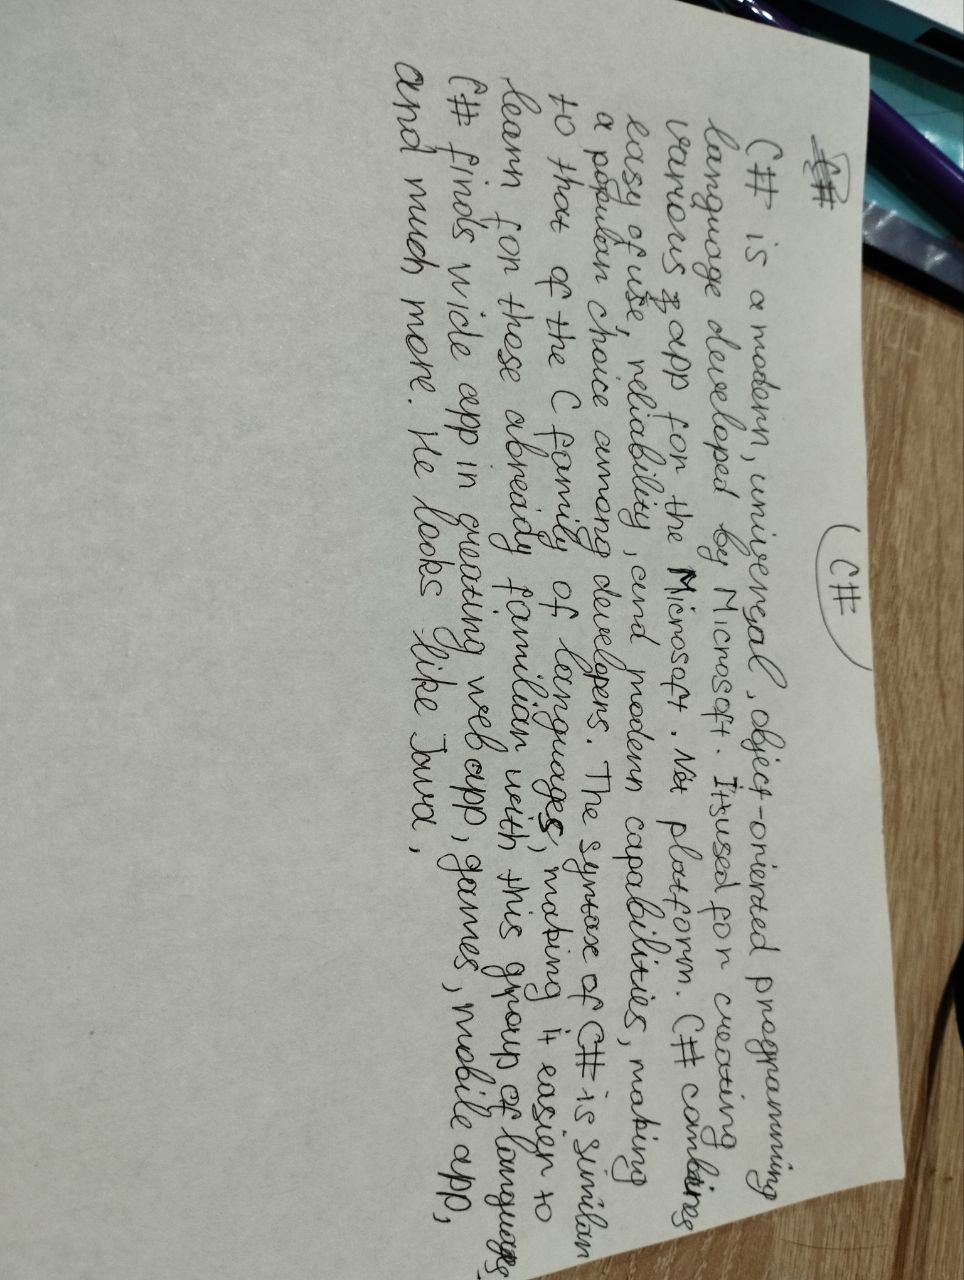 C#
C#
C# is a modern, universal, object-oriented programming
language developed by Microsoft. It used for creating
various app for the Microsoft .Net platform. C# combines
easy of use, reliability, and modern capabilities, making
a popular choice among developers. The syntax of C# is similar
to that of the C family of languages, making it easier to
learn for those already familiar with this group of languages
C# finds wide app in creating web app, games, mobile app,
and much more. He looks like Java,